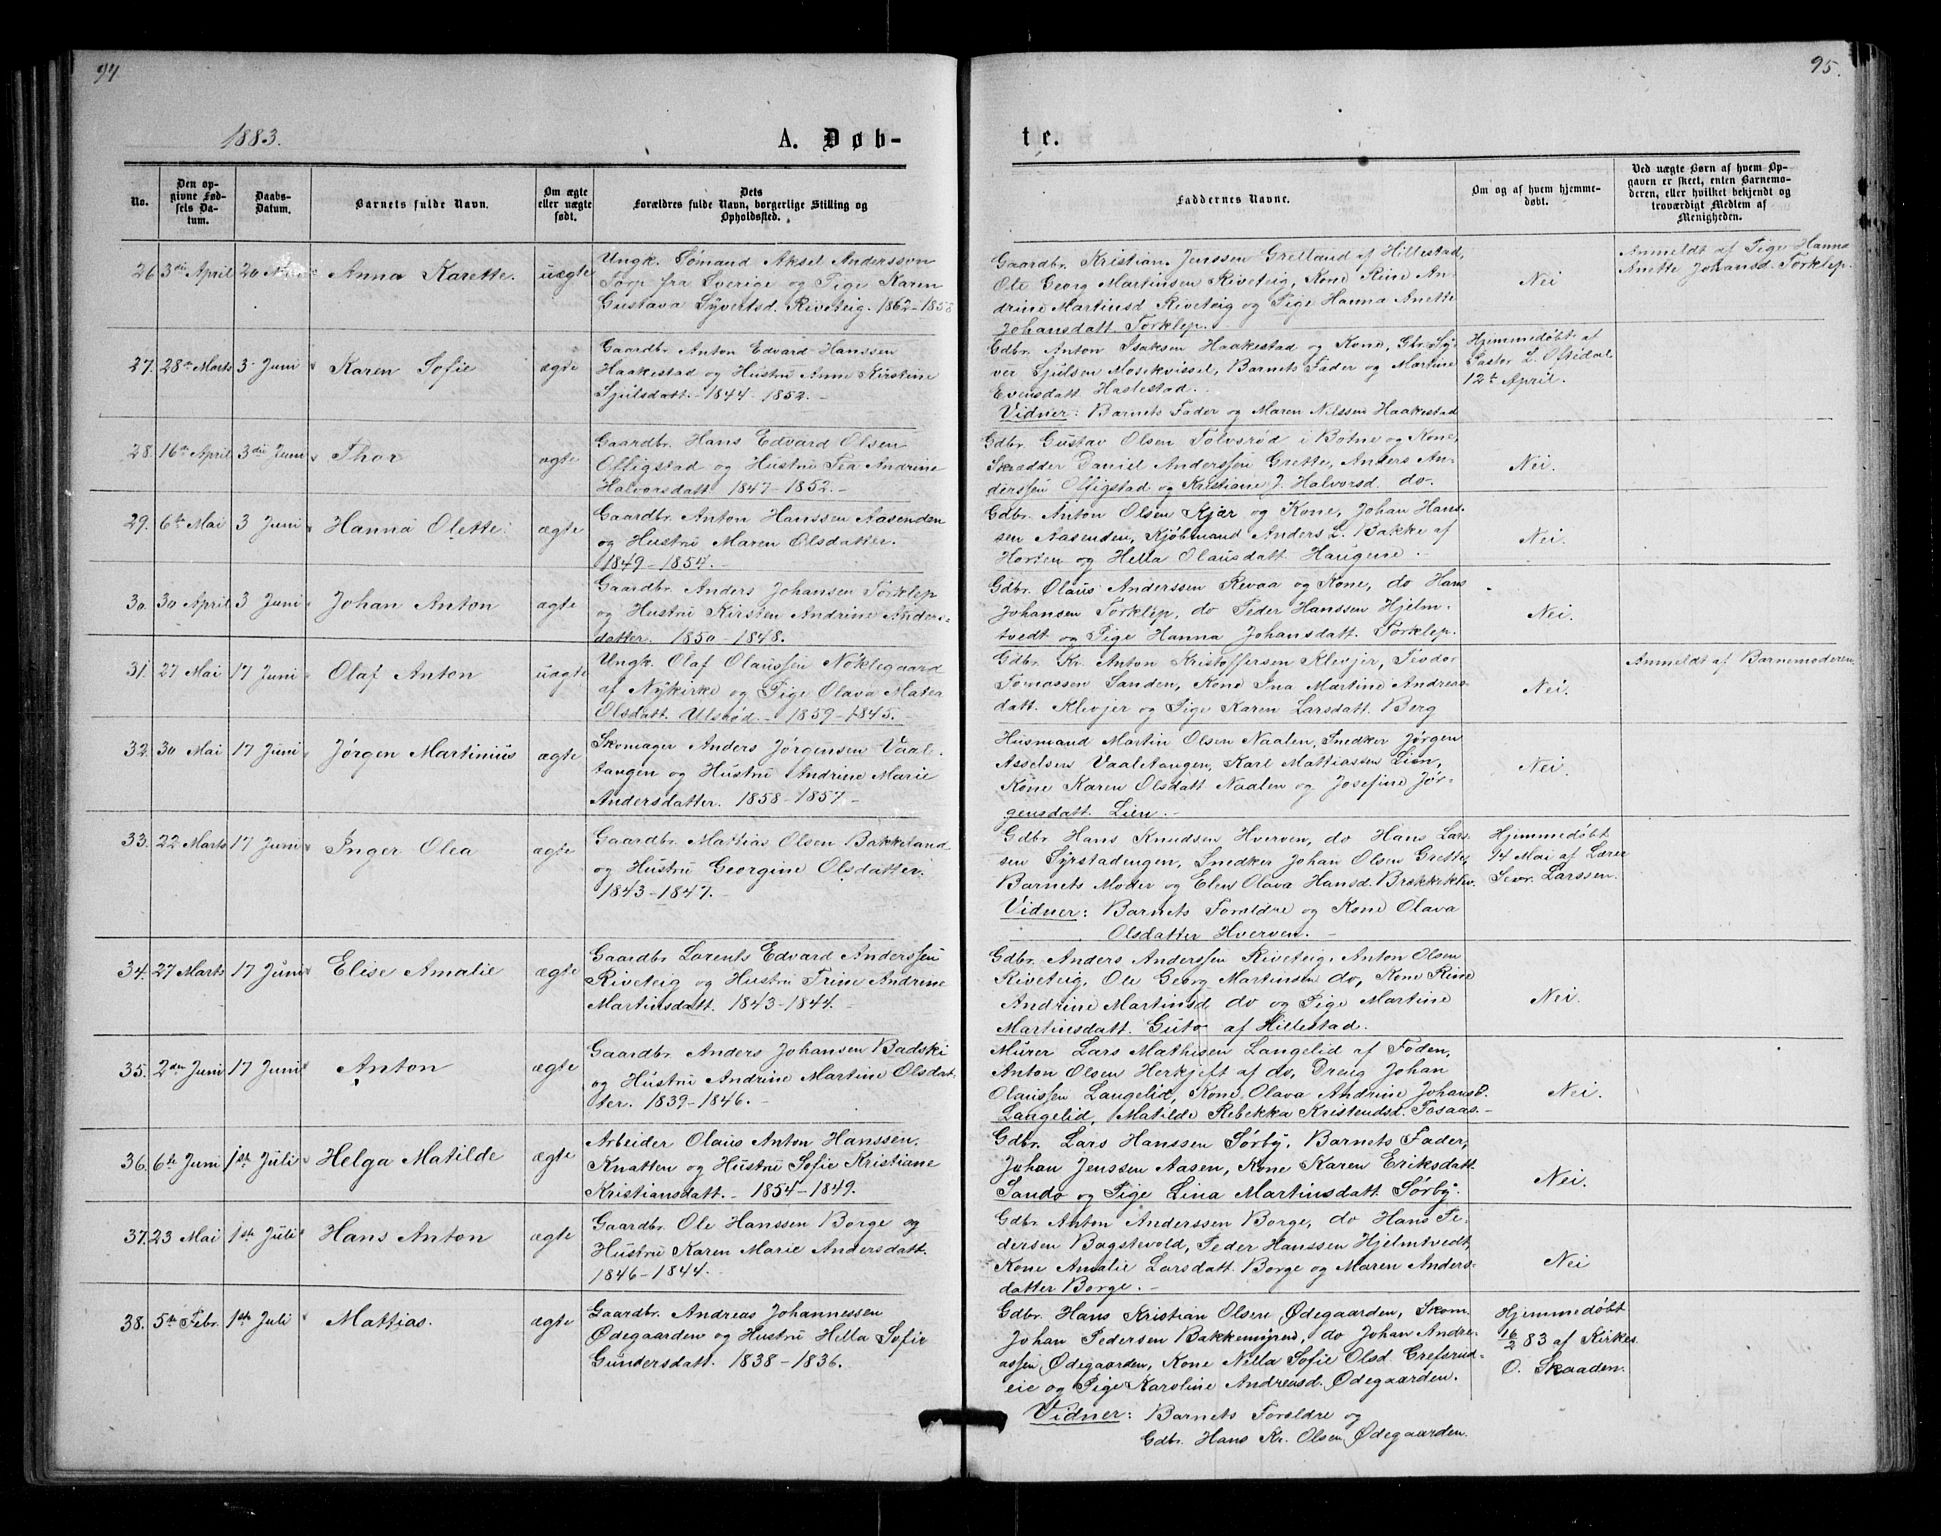 94
1883.
A. Døb-
No.
Den op-
givne Fød-
sels Da-
tum.
Daabs-
Datum.
Barnets fulde Navn.
Om ægte
eller uægte
født.
Dets
Forældres fulde Navn, borgerlige Stilling og
Opholdssted.
26. 3die April 20 Anna Karette. uægte
Ungk. Sømand Aksel Anderssøn
Torp fra Sverige og Pige Karen
Gustava Syvertsd. Riveteig. 1862-1858
27. 28de Marts 3. Juni Karen Sofie ægte
Gaardbr. Anton Edvard Hanssen
Haakestad og Hustru Anne Kirstine
Sjulsdatt. - 1844 - 1852. -
28. 16de April 3die Juni Thor ægte
Gaardbr. Hans Edvard Olsen
Offigstad og Hustru Tea Andrine
Halvorsdatt. 1847-1852. -
29. 6te Mai 3 Juni Hanna Olette. ægte
Gaardbr. Anton Hanssen Aasenden
og Hustru Maren Olsdatter.
1849-1854. -
30. 30 April 3 Juni Johan Anton ægte
Gaardbr. Anders Johansen Torklep
og Hustru Kirsten Andrine Anders-
datter. 1850 - 1848. -
31. 27 Mai 17 Juni Olaf Anton uægte
Ungk. Olaf Olaussen Nøklegaard
af Nykirke og Pige Olava Matea
Olsdatt. Ulsrød. - 1859-1845.
32. 30 Mai 17 Juni Jørgen Martinius ægte
Skomager Anders Jørgensen Vaal-
tangen og Hustru Andrine Marie
Andersdatter. 1858-1857. -
33. 22 Marts 17 Juni Inger Olea ægte
Gaardbr. Mattias Olsen Bakkeland
og Hustru Georgine Olsdatter.
1843-1847. -
34. 27 Marts 17 Juni Elise Amalie ægte
Gaardbr. Lorents Edvard Anderssen
Riveteig og Hustru Trine Andrine
Martinsdatt. 1843-1844. -
35. 2den Juni 17 Juni Anton ægte
Gaardbr. Anders Johansen Badski
og Hustru Andrine Martine Olsdat-
ter. 1839-1846. -
36. 6te Juni 1ste Juli Helga Matilde ægte
Arbeider Olaus Anton Hanssen.
Knatten og Hustru Sofie Kristiane
Kristiansdatt. - 1854-1849.
37. 23 Mai 1ste Juli Hans Anton ægte
Gaardbr. Ole Hanssen Borge og
Hustru Karen Marie Andersdatt.
1846-1844. -
38. 5te Febr. 1ste Juli Mattias. ægte
Gaardbr. Andreas Johannessen
Ødegaarden og Hustru Hella Sofie
Gundersdatt. 1838-1836.
95.
te.
Faddernes Navne.
Om og af hvem hjemme-
døbt.
Ved uægte Børn af hvem Op-
gaven er skeet, enten Barnemo-
deren, eller hvilket bekjendt og
troværdigt Medlem af
Menigheden.
Gaardbr. Kristian Jenssen Grelland af Hillestad,
Ole Georg Martinsen Riveteig, Kone Rine An-
drine Martinsd. Riveteig og Pige Hanna Anette
Johansdatt. Torklep.
Nei
Anmeldt af Pige Hanna
Anette Johansd. Torklep.
Gdbr. Anton Isaksen Haakestad og Kone, Gbr. Sy-
ver Sjulsen Mosekvissel, Barnets Fader og Martine
Evensdatt Haslestad.
Vidner: Barnets Fader og Maren Nilssen Haakestad
Hjemmedøbt af
Pastor L. Oftedal
12te April.
Gdbr. Gustav Olsen Tolvsrød i Botne og Kone,
Skrædder Daniel Anderssen Grette, Anders An-
derssen Offigstad og Kristiane J. Halvorsd. do.
Nei.
Gdbr. Anton Olsen Kjær og Kone, Johan Hans-
sen Aasenden, Kjøbmand Anders L. Bakke af
Horten og Hella Olausdatt Haugene. -
Nei.
Gdbr. Olaus Anderssen Revaa og Kone, do Hans
Johansen Torklep, do Peder Hanssen Hjelm-
tvedt og Pige Hanna Johansdatt. Torklep.
Nei.
Gdbr. Kr. Anton Kristoffersen Klevjer, Teodor
Tomassen Sanden, Kone Ina Martine Andreas-
datt. Klevjer og Pige Karen Larsdatt. Berg
Nei.
Anmeldt af Barnemoderen
Husmand Martin Olsen Naalen, Snedker Jørgen
Asselsen Vaaletangen, Karl Mattiassen Lien,
Kone Karen Olsdatt Naalen og Josefine Jør-
gensdatt. Lien. -
Nei.
Gdbr Hans Knudsen Hverven, do Hans Lars-
sen Syrstadengen, Snedker Johan Olsen Grette,
Barnets Moder og Elen Olava Hansd.
Vidner: Barnets Forældre og Kone Olava
Olsdatter Hverven. -
Hjemmedøbt
14 Mai af Lærer
Larssen.
Gdbr. Anders Anderssen Riveteig, Anton Olsen
Riveteig, Ole Georg Martinsen do, Kone Rine
Andrine Martinsd do og Pige Martine
Martinsdatt. Guto af Hillestad.
Nei.
Murer Lars Mathisen Langelid af Foden,
Anton Olsen Herkjeft af do, Dreng Johan
Olaussen Langelid, Kone Olava Andrine Johansd.
Langelid, Matilde Rebekka Kristendst. Fosaas. -
Nei.
Gdbr. Lars Hanssen Sørby, Barnets Fader,
Johan Jenssen Aasen, Kone Karen Eriksdatt.
Sando og Pige Lina Martinsdatt. Sørby.
Nei.
Gdbr. Anton Anderssen Borge, do Hans Pe-
dersen Bogstevold, Peder Hanssen Hjelmtvedt,
Kone Amalie Larsdatt. Borge og Maren Anders-
datter Borge. -
Nei
Gdbr. Hans Kristian Olsen Ødegaarden, Skom.
Johan Pedersen Bakkemyren, do Johan Andre-
assen Ødegaarden, Kone Nilla Sofie Olsd. Grefsrud-
eie og Pige Karoline Andreasd. Ødegaarden.
Vidner: Barnets Forældre og
Gdbr. Hans Kr. Olsen Ødegaarden.
Hjemmedøbt
16/2 83 af Kirkes.
O. Skaaden.